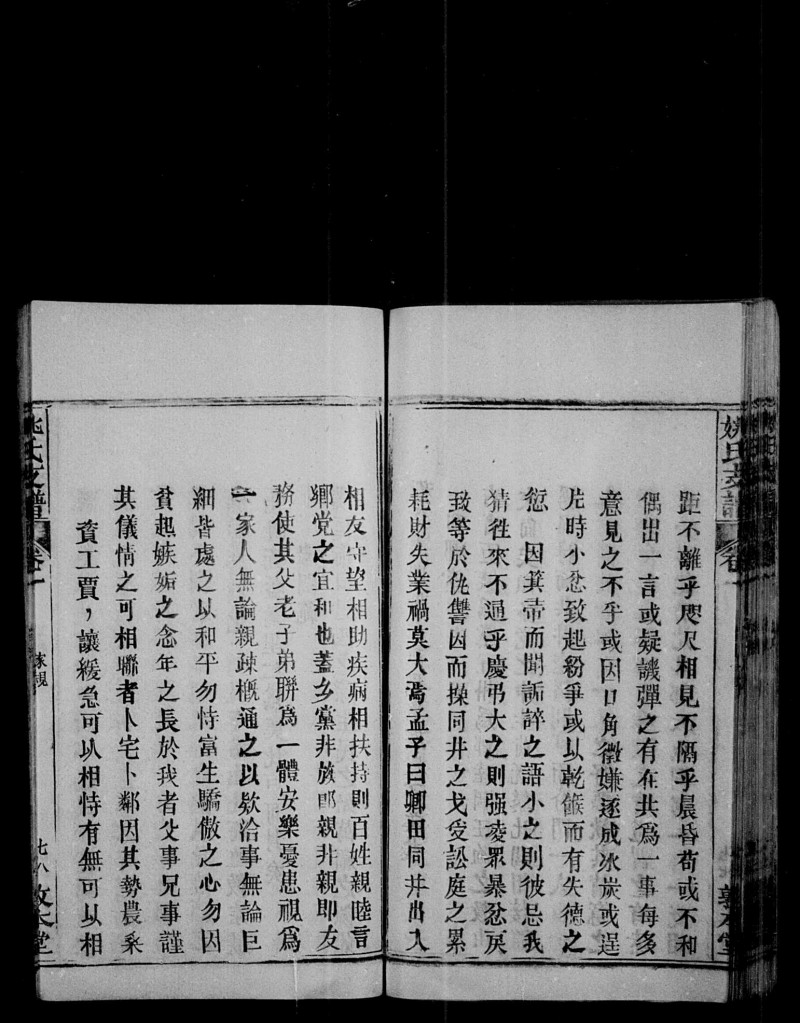 姚氏支譜
卷一
敦本堂
距不離乎咫尺相見不隔乎晨昏苟或不和
偶出一言或疑譏彈之有在共爲一事每多
意見之不乎或因口角微嫌逐成冰炭或逞
片時小忿致起紛爭或以乾餱而有失德之
愆因箕帚而聞詬誶之語小之則彼忌我
猜徃來不通乎慶弔大之則强凌衆暴忿戾
致等於仇讐因而操同井之戈受訟庭之累
耗財失業禍莫大焉孟子曰鄉田同井出入
相友守望相助疾病相扶持則百姓親睦言
鄉党之宜和也蓋乡黨非族卽親非親即友
務使其父老子弟聯爲一體安樂憂患視爲
一家人無論親疎概通之以欵洽事無論巨
細皆處之以和平勿恃富生驕傲之心勿因
貧起嫉妬之念年之長於我者父事兄事謹
其儀情之可相聯者卜宅卜鄰因其勢農桑
資工賈，讓緩急可以相恃有無可以相
姚氏支譜
卷一
家規
七八
敦本堂